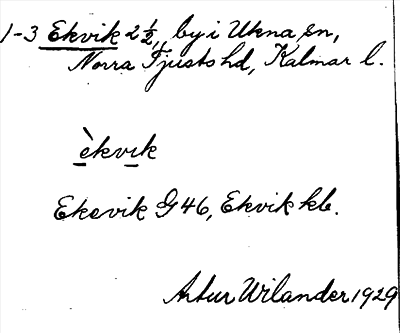 1-3 Ekvik 2 1/2, by i Ukna sn,
Norra Tjusts hd, Kalmar l.
èkvik
Ekevik G 46, Ekvik kb.
Artur Wilander 1929